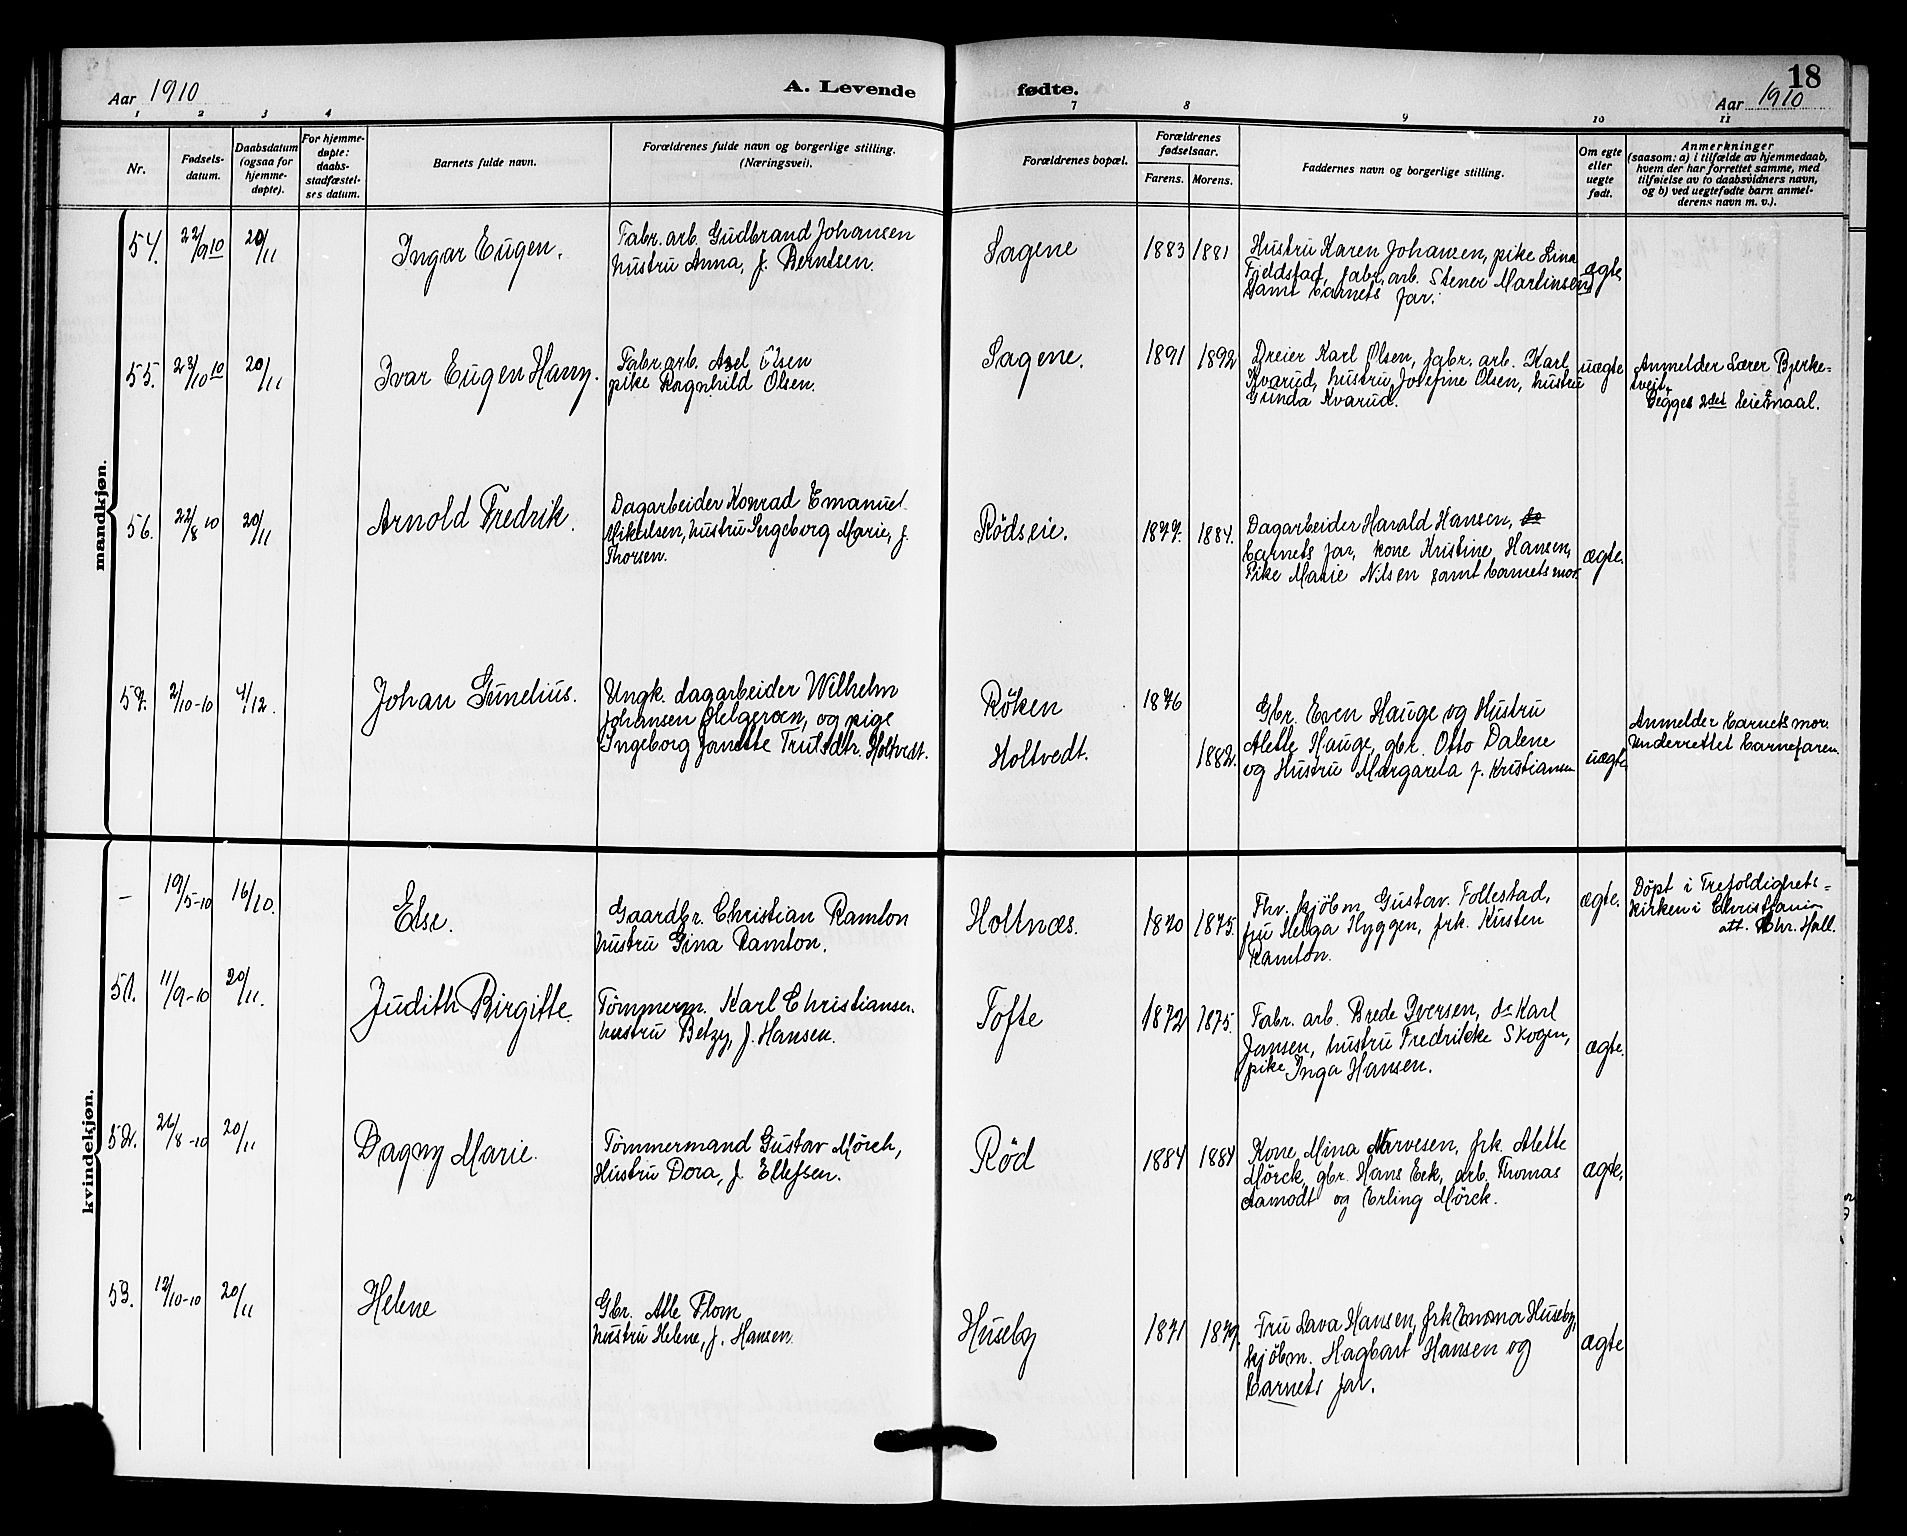 18
Aar 1910
A. Levende
fødte.
Aar 1910
1 2 3 4 7 8 9 10 11
Nr.
Fødsels-
datum.
Daabsdatum
(ogsaa for
hjemme-
døpte).
For hjemme-
døpte:
daabs-
stadfæstel-
ses datum.
Barnets fulde navn.
Forældrenes fulde navn og borgerlige stilling.
(Næringsvei).
Forældrenes bopæl.
Forældrenes
fødselsaar.
Farens. Morens.
Faddernes navn og borgerlige stilling.
Om egte
eller
uegte
født.
Anmerkninger
(saasom: a) i tilfælde av hjemmedaab,
hvem der har forrettet samme, med
tilføielse av to daabsvidners navn,
og b) ved uegtefødte barn anmel-
derens navn m. v.).
mandkjøn.
54. 22/9 10 20/11
Ingar Eugen.
Fabr. arb. Gudbrand Johansen
hustru Anna, f. Berntsen.
Sagene
1883 1881
Hustru Karen Johansen, pike Lina
Fjeldstad, fabr. arb. Stener Martinsen
samt barnets far.
ægte
55. 23/10 10 20/11
Ivar Eugen Harry.
Fabr. arb. Axel Olsen
pike Ragnhild Olsen.
Sagene.
1891 1892
Dreier Karl Olsen, fabr. arb. Karl
Kvarud, hustru Josefine Olsen, hustru
Gunda Kvarud.
uægte
Anmelder Lærer Bjerke=
tveit.
Begges 2det leiermaal.
56. 22/8 10 20/11
Arnold Fredrik.
Dagarbeider Konrad Emanuel
Mikalsen, hustru Ingeborg Marie, f.
Thorsen.
Rødseie.
1877. 1884.
Dagarbeider Harald Hansen,
barnets far, kone Kristine Hansen,
Pike Marie Nilsen samt barnets mor.
ægte.
57. 2/10-10 4/12.
Johan Gunelius.
Ungk. dagarbeider Wilhelm
Johansen Helgeroen, og pige
Ingeborg Janette Trulsdtr. Holtvedt.
Røken
Holtvedt.
1876
1882.
Gbr. Even Hauge og Hustru
Alette Hauge, gbr. Otto Dalene
og Hustru Margareta f. Kristiansen
uægte
Anmelder barnets mor.
Underrettet barnefaren.
kvindekjøn.
— 19/5-10 16/10.
Else.
Gaardbr. Christian Ramton
hustru Gina Ramton.
Holtnæs.
1870 1875.
Fhv. kjøbm. Gustav Follestad,
fru Helga Hyggen, frk. Kirsten
Ramton.
ægte.
Döpt i Trefoldighets=
kirken i Christiania
att. Chr. Hall.
51. 11/9-10 20/11.
Judith Birgitte.
Tømmerm. Karl Christiansen.
hustru Betzy, f. Hansen.
Tofte
1872 1875.
Fabr. arb. Brede Iversen, do Karl
Jansen, hustru Fredrikke Skogen,
pike Inga Hansen.
ægte.
52. 26/8-10 20/11
Dagny Marie.
Tømmermand Gustav Mörch,
Hustru Dora, f. Ellefsen.
Rød
1884 1884
Kone Mina Narvesen, frk. Alette
Mörck, gbr. Hans Eek, arb. Thomas
Aamodt og Erling Mörck.
ægte.
53. 12/10-10 20/11
Helene
Gbr. Atle Flom
hustru Helene, f. Hansen.
Huseby
1871 1879.
Fru Lava Hansen, frk Emma Huseby,
kjöbm. Hagbart Hansen og
barnets far.
ægte